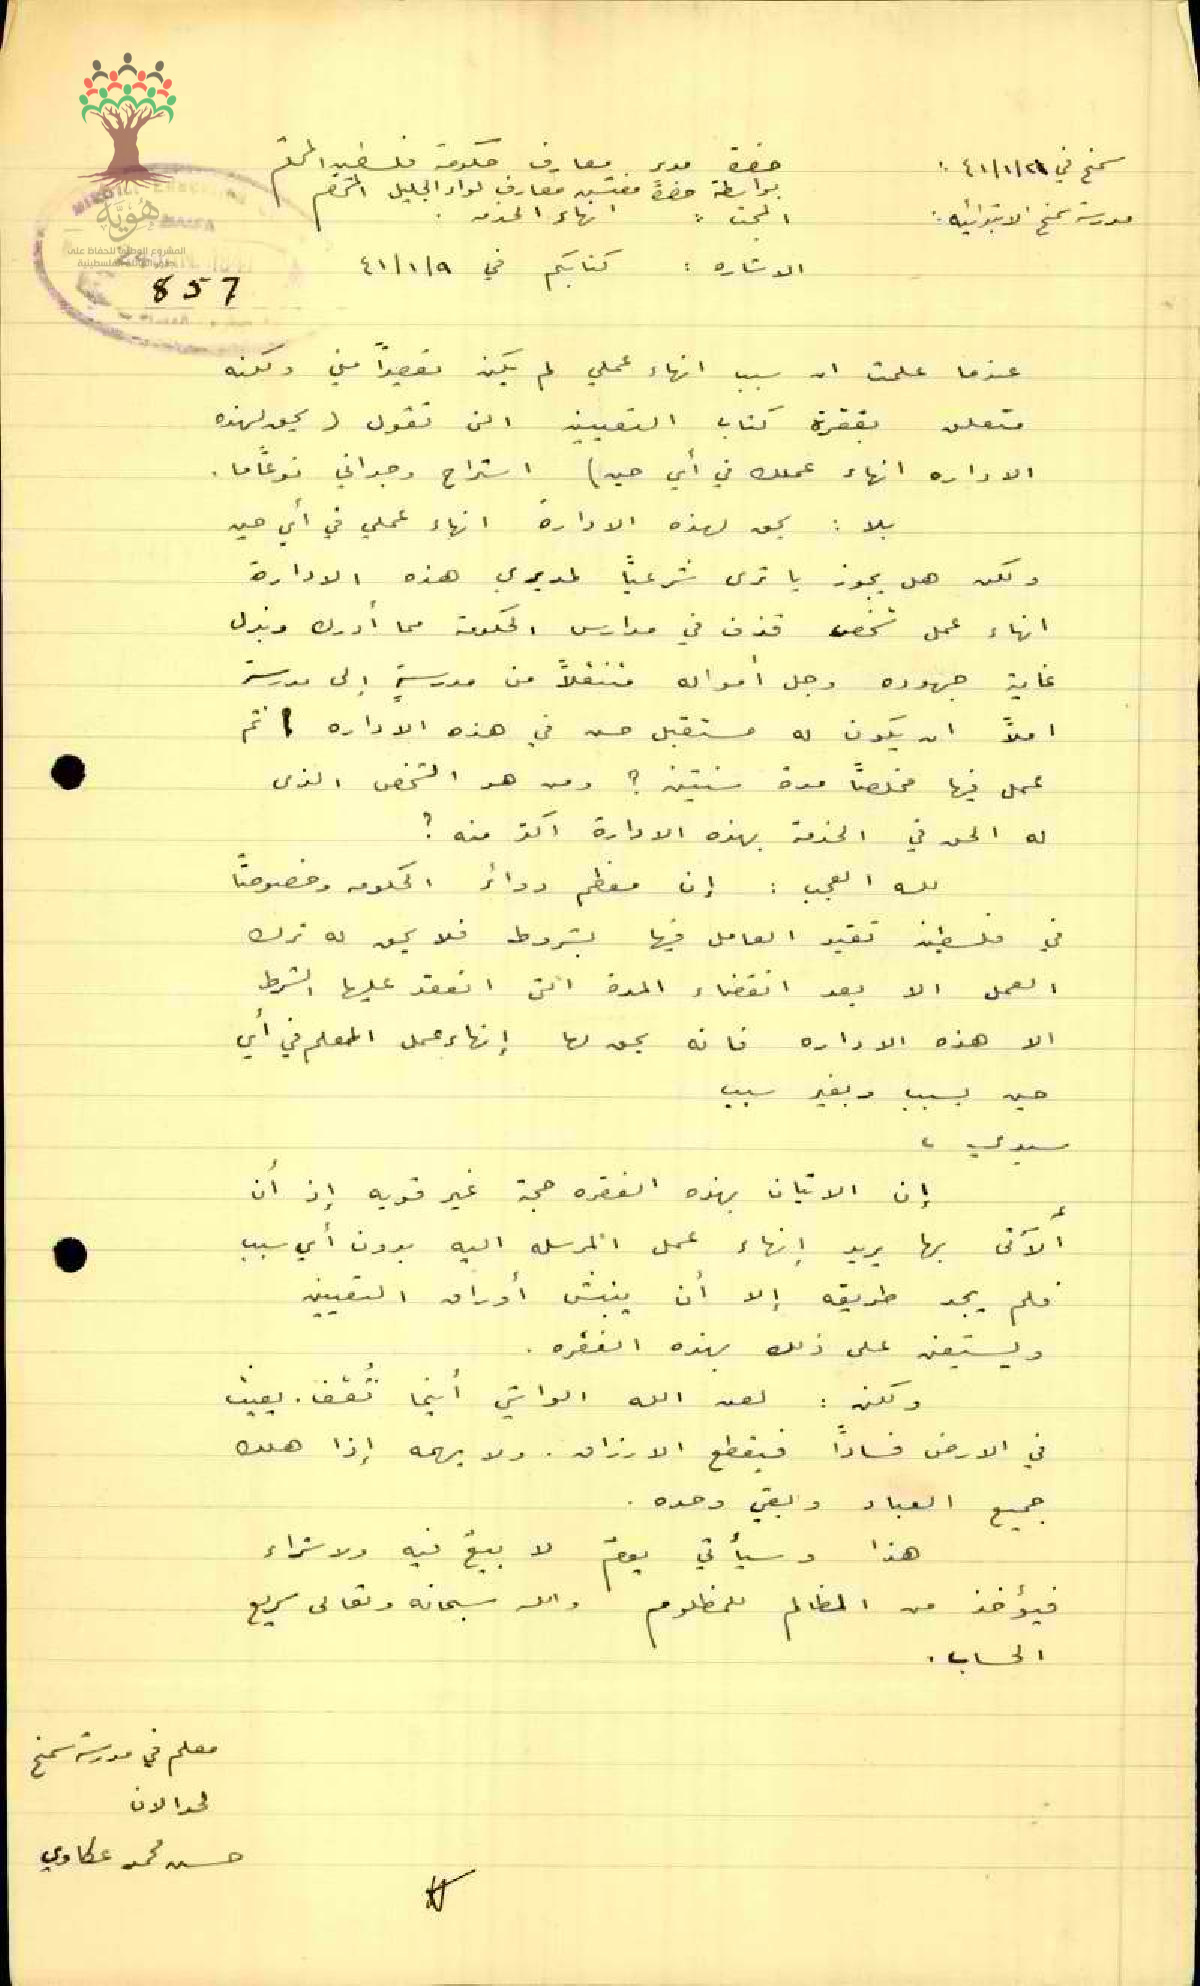 سمخ في ٤١/١/٢١ :
حضرة مدير معارف حكومة فلسطين المحترم
بواسطة حضرة مفتش معارف لواء الجليل المحترم
مدرسة سمخ الابتدائية :
البحث : انهاء الخدمه .
الاشاره : كتابكم في ٤١/١/٩
HAIFA
هُوِيَّة
المشروع الوطني للحفاظ على
857
عندما علمت ان سبب انهاء عملي لم يكن تقصيراً مني ولكنه
متعلق بفقرة كتاب التعيين التي تقول ( يحق لهذه
الاداره انهاء عملك في أي حين) استراح وجداني نوعًا ما .
بلا : يحق لهذه الادارة انهاء عملي في أي حين
ولكن هل يجوز يا ترى شرعيًا لمديري هذه الادارة
انهاء عمل شخص قذف في مدارس الحكومة مما أدرك وبذل
غاية جهوده وجل أمواله متنقلاً من مدرسةٍ إلى مدرسة
املاً ان يكون له مستقبل حسن في هذه الاداره ثم
عمل فيها مخلصًا مدة سنتين ؟ ومن هو الشخص الذي
له الحق في الخدمة بهذه الادارة اكثر منه ؟
لله العجب : إن معظم دوائر الحكومه وخصوصًا
في فلسطين تقيد العامل فيها بشروط فلا يحق له ترك
العمل الا بعد انقضاء المدة التي انعقد عليها الشرط
الا هذه الاداره فانه يحق لها إنهاء عمل المعلم في أي
حين بسبب وبغير سبب
سيدي ،
إن الاتيان بهذه الفقره حجة غير قويه إذ أن
ألآتى بها يريد إنهاء عمل المرسله اليه بدون أي سبب
فلم يجد طريقه إلا أن ينبش أوراق التعيين
ويستعين على ذلك بهذه الفقره .
ولكن : لعن الله الواشي أينما ثُقف . يعيث
في الارض فسادًا فيقطع الارزاق . ولا يهمه إذا هلك
جميع العباد وبقي وحده .
هذا وسيأتي يومٌ لا بيعٌ فيه ولا شراء
فيؤخذ من الظالم للمظلوم والله سبحانه وتعالى سريع
الحساب .
معلم في مدرسة سمخ
لحد الان
حسن محمد عكاوي